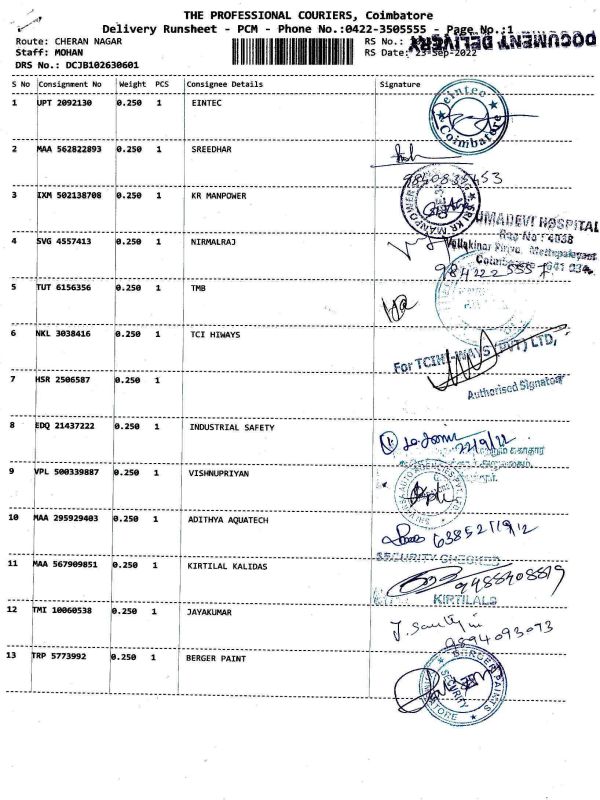 THE PROFESSIONAL COURIERS, Coimbatore
Delivery Runsheet - PCM - Phone No.:0422-3505555 - Page No.:1
Route: CHERAN NAGAR RS No.:
DOCUMENT DELIVERY
Staff: MOHAN RS Date: 23-Sep-2022
DRS No.: DCJB102630601
S No Consignment No Weight PCS Consignee Details Signature
1 UPT 2092130 0.250 1 EINTEC
eintec
Coimbatore
2 MAA 562822893 0.250 1 SREEDHAR
9840835453
3 IXM 502138708 0.250 1 KR MANPOWER
SRI KR MANPOWER
UMADEVI HOSPITAL
Reg No: 4038
4 SVG 4557413 0.250 1 NIRMALRAJ
Coimbatore 641 034
5 TUT 6156356 0.250 1 TMB
6 NKL 3038416 0.250 1 TCI HIWAYS
For TCI HI-WAYS (PVT) LTD,
7 HSR 2506587 0.250 1
Authorised Signatory
8 EDQ 21437222 0.250 1 INDUSTRIAL SAFETY
22/9/22
9 VPL 500339887 0.250 1 VISHNUPRIYAN
10 MAA 295929403 0.250 1 ADITHYA AQUATECH
11 MAA 567909851 0.250 1 KIRTILAL KALIDAS
SECURITY CHECKED
9488408879
KIRTILALS
12 TMI 10060538 0.250 1 JAYAKUMAR
9894093073
13 TRP 5773992 0.250 1 BERGER PAINT
BERGER PAINTS
SECURITY